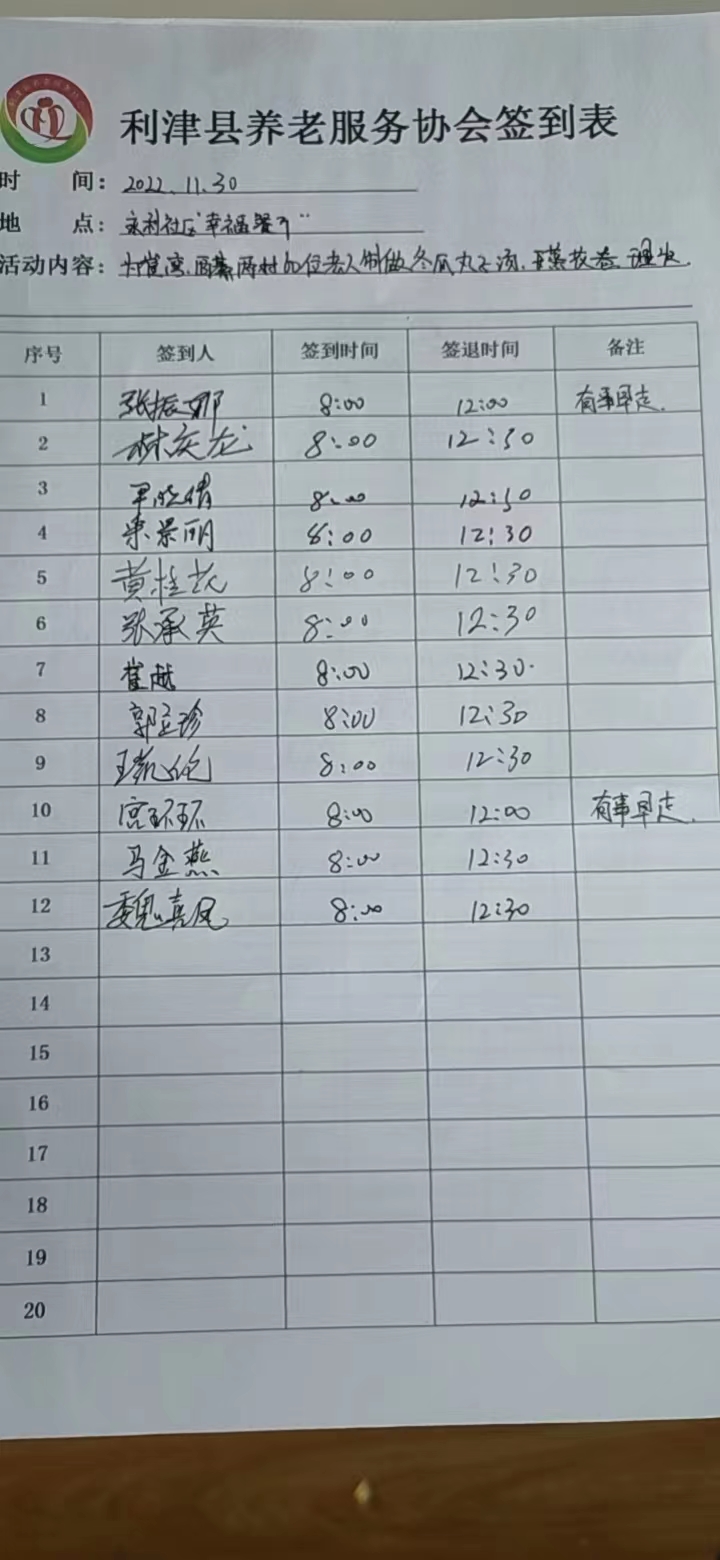 利津县养老服务协会签到表
时 间：2022.11.30
地 点：永利社区"幸福餐厅"
活动内容：为 两村 位老人制做冬瓜丸子汤、 理发
序号 签到人 签到时间 签退时间 备注
1 张振那 8:00 12:00 有事早走.
2 林庆龙 8:00 12:30
3 8:00 12:30
4 景明 8:00 12:30
5 黄桂花 8:00 12:30
6 张承英 8:00 12:30
7 崔越 8:00 12:30.
8 郭立珍 8:00 12:30
9 8:00 12:30
10 宫环环 8:00 12:00 有事早走.
11 马金燕 8:00 12:30
12 魏喜凤 8:00 12:30
13
14
15
16
17
18
19
20